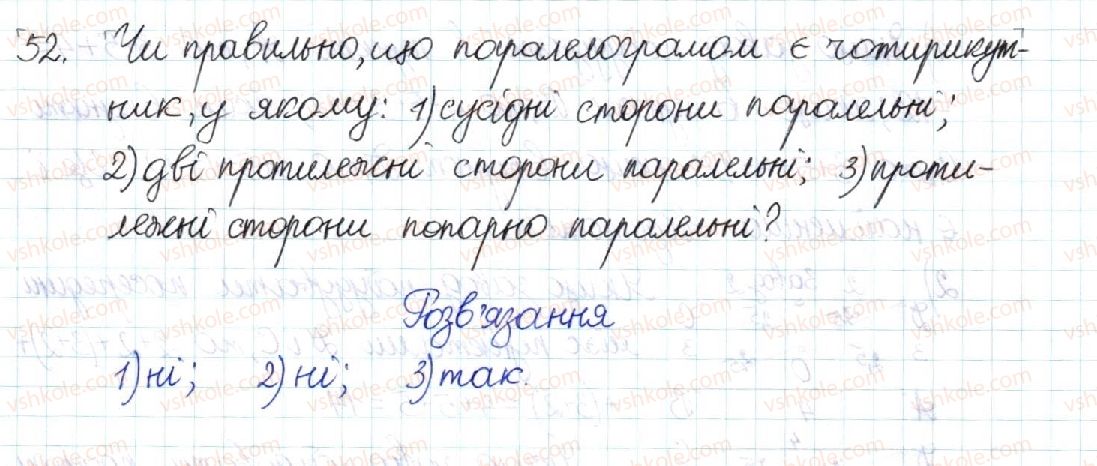 52. Чи правильно, що паралелограмом є чотирикут-
ник, у якому: 1) сусідні сторони паралельні;
2) дві протилежні сторони паралельні; 3) проти-
лежні сторони попарно паралельні?
Розв'язання
1) ні; 2) ні; 3) так.